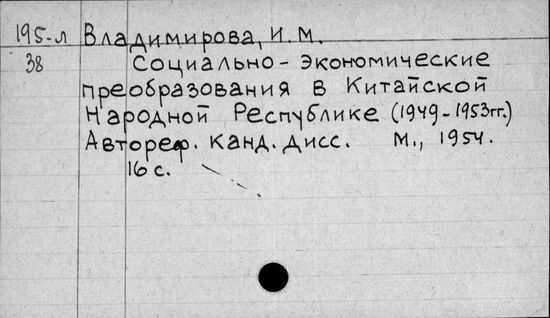 195-л Владимирова, И.М.
38 Социально-экономические
преобразования в Китайской
Народной Республике (1949-1953гг.)
Автореф. канд. дисс. М., 1954.
16 с.